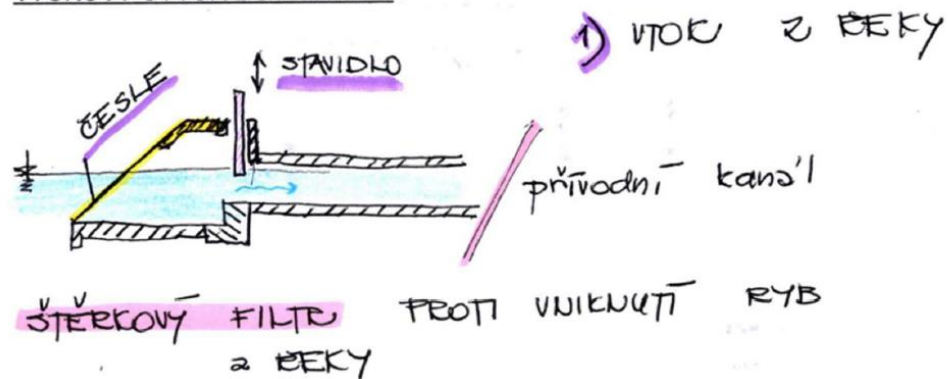 1) VTOK Z ŘEKY
STAVIDLO
ČESLE
přívodní kanál
ŠTĚRKOVÝ FILTR PROTI VNIKNUTÍ RYB
z ŘEKY